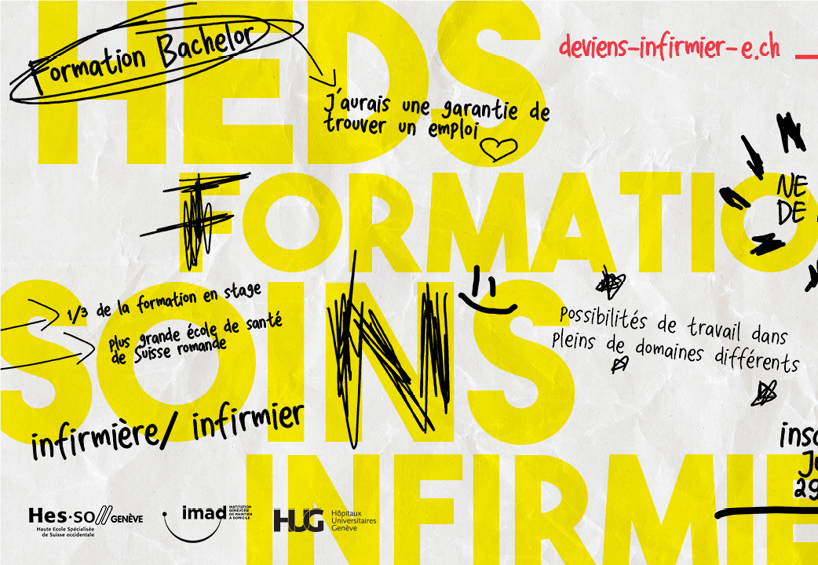 HEDS
Formation Bachelor
deviens-infirmier-e.ch
J'aurais une garantie de
trouver un emploi
FORMATIO
NE
DE
1/3 de la formation en stage
plus grande école de santé
de Suisse romande
SOINS
Possibilités de travail dans
Pleins de domaines différents
infirmière/ infirmier
insc
Ju
29
INFIRMIE
Hes·so// GENÈVE
Haute Ecole Spécialisée
de Suisse occidentale
imad
INSTITUTION
GENEVOISE
DE MAINTIEN
À DOMICILE
HUG
Hôpitaux
Universitaires
Genève